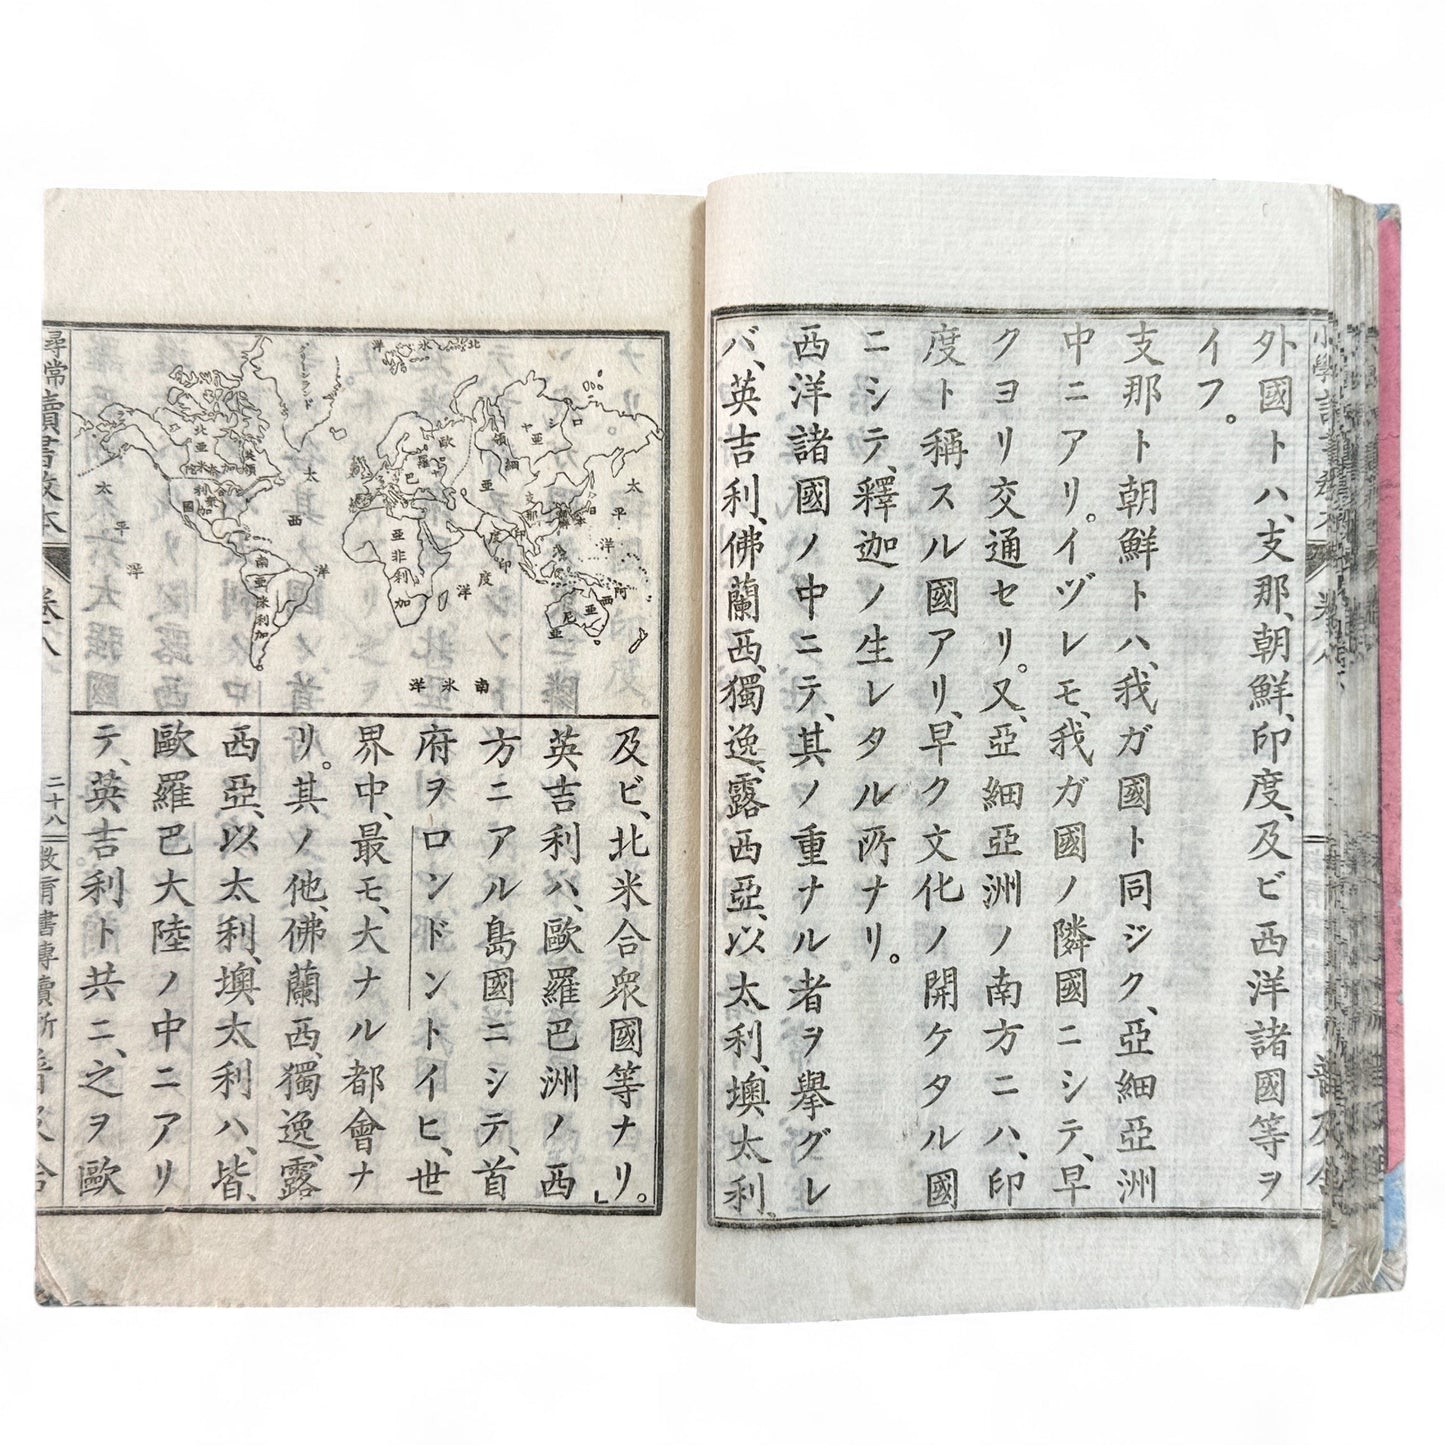 外國トハ、支那、朝鮮、印度、及ビ西洋諸國等ヲ
イフ。
支那ト朝鮮トハ、我ガ國ト同ジク、亞細亞洲
中ニアリ。イヅレモ、我ガ國ノ隣國ニシテ、早
クヨリ交通セリ。又、亞細亞洲ノ南方ニハ、印
度ト稱スル國アリ、早ク文化ノ開ケタル國
ニシテ、釋迦ノ生レタル所ナリ。
西洋諸國ノ中ニテ、其ノ重ナル者ヲ擧グレ
バ、英吉利、佛蘭西、獨逸、露西亞、以太利、墺太利、
北氷洋
グリーンランド
太平洋
太西洋
北亞米利加
合衆國
南亞米利加
歐羅巴
亞非利加
亞細亞
支那
朝鮮
日本
印度
印度洋
太平洋
南氷洋
及ビ、北米合衆國等ナリ。」
英吉利ハ、歐羅巴洲ノ西
方ニアル島國ニシテ、首
府ヲロンドントイヒ、世
界中、最モ、大ナル都會ナ
リ。其ノ他、佛蘭西、獨逸、露
西亞、以太利、墺太利ハ、皆、
歐羅巴大陸ノ中ニアリ
テ、英吉利ト共ニ、之ヲ歐
尋常讀書教本
卷八
二十八